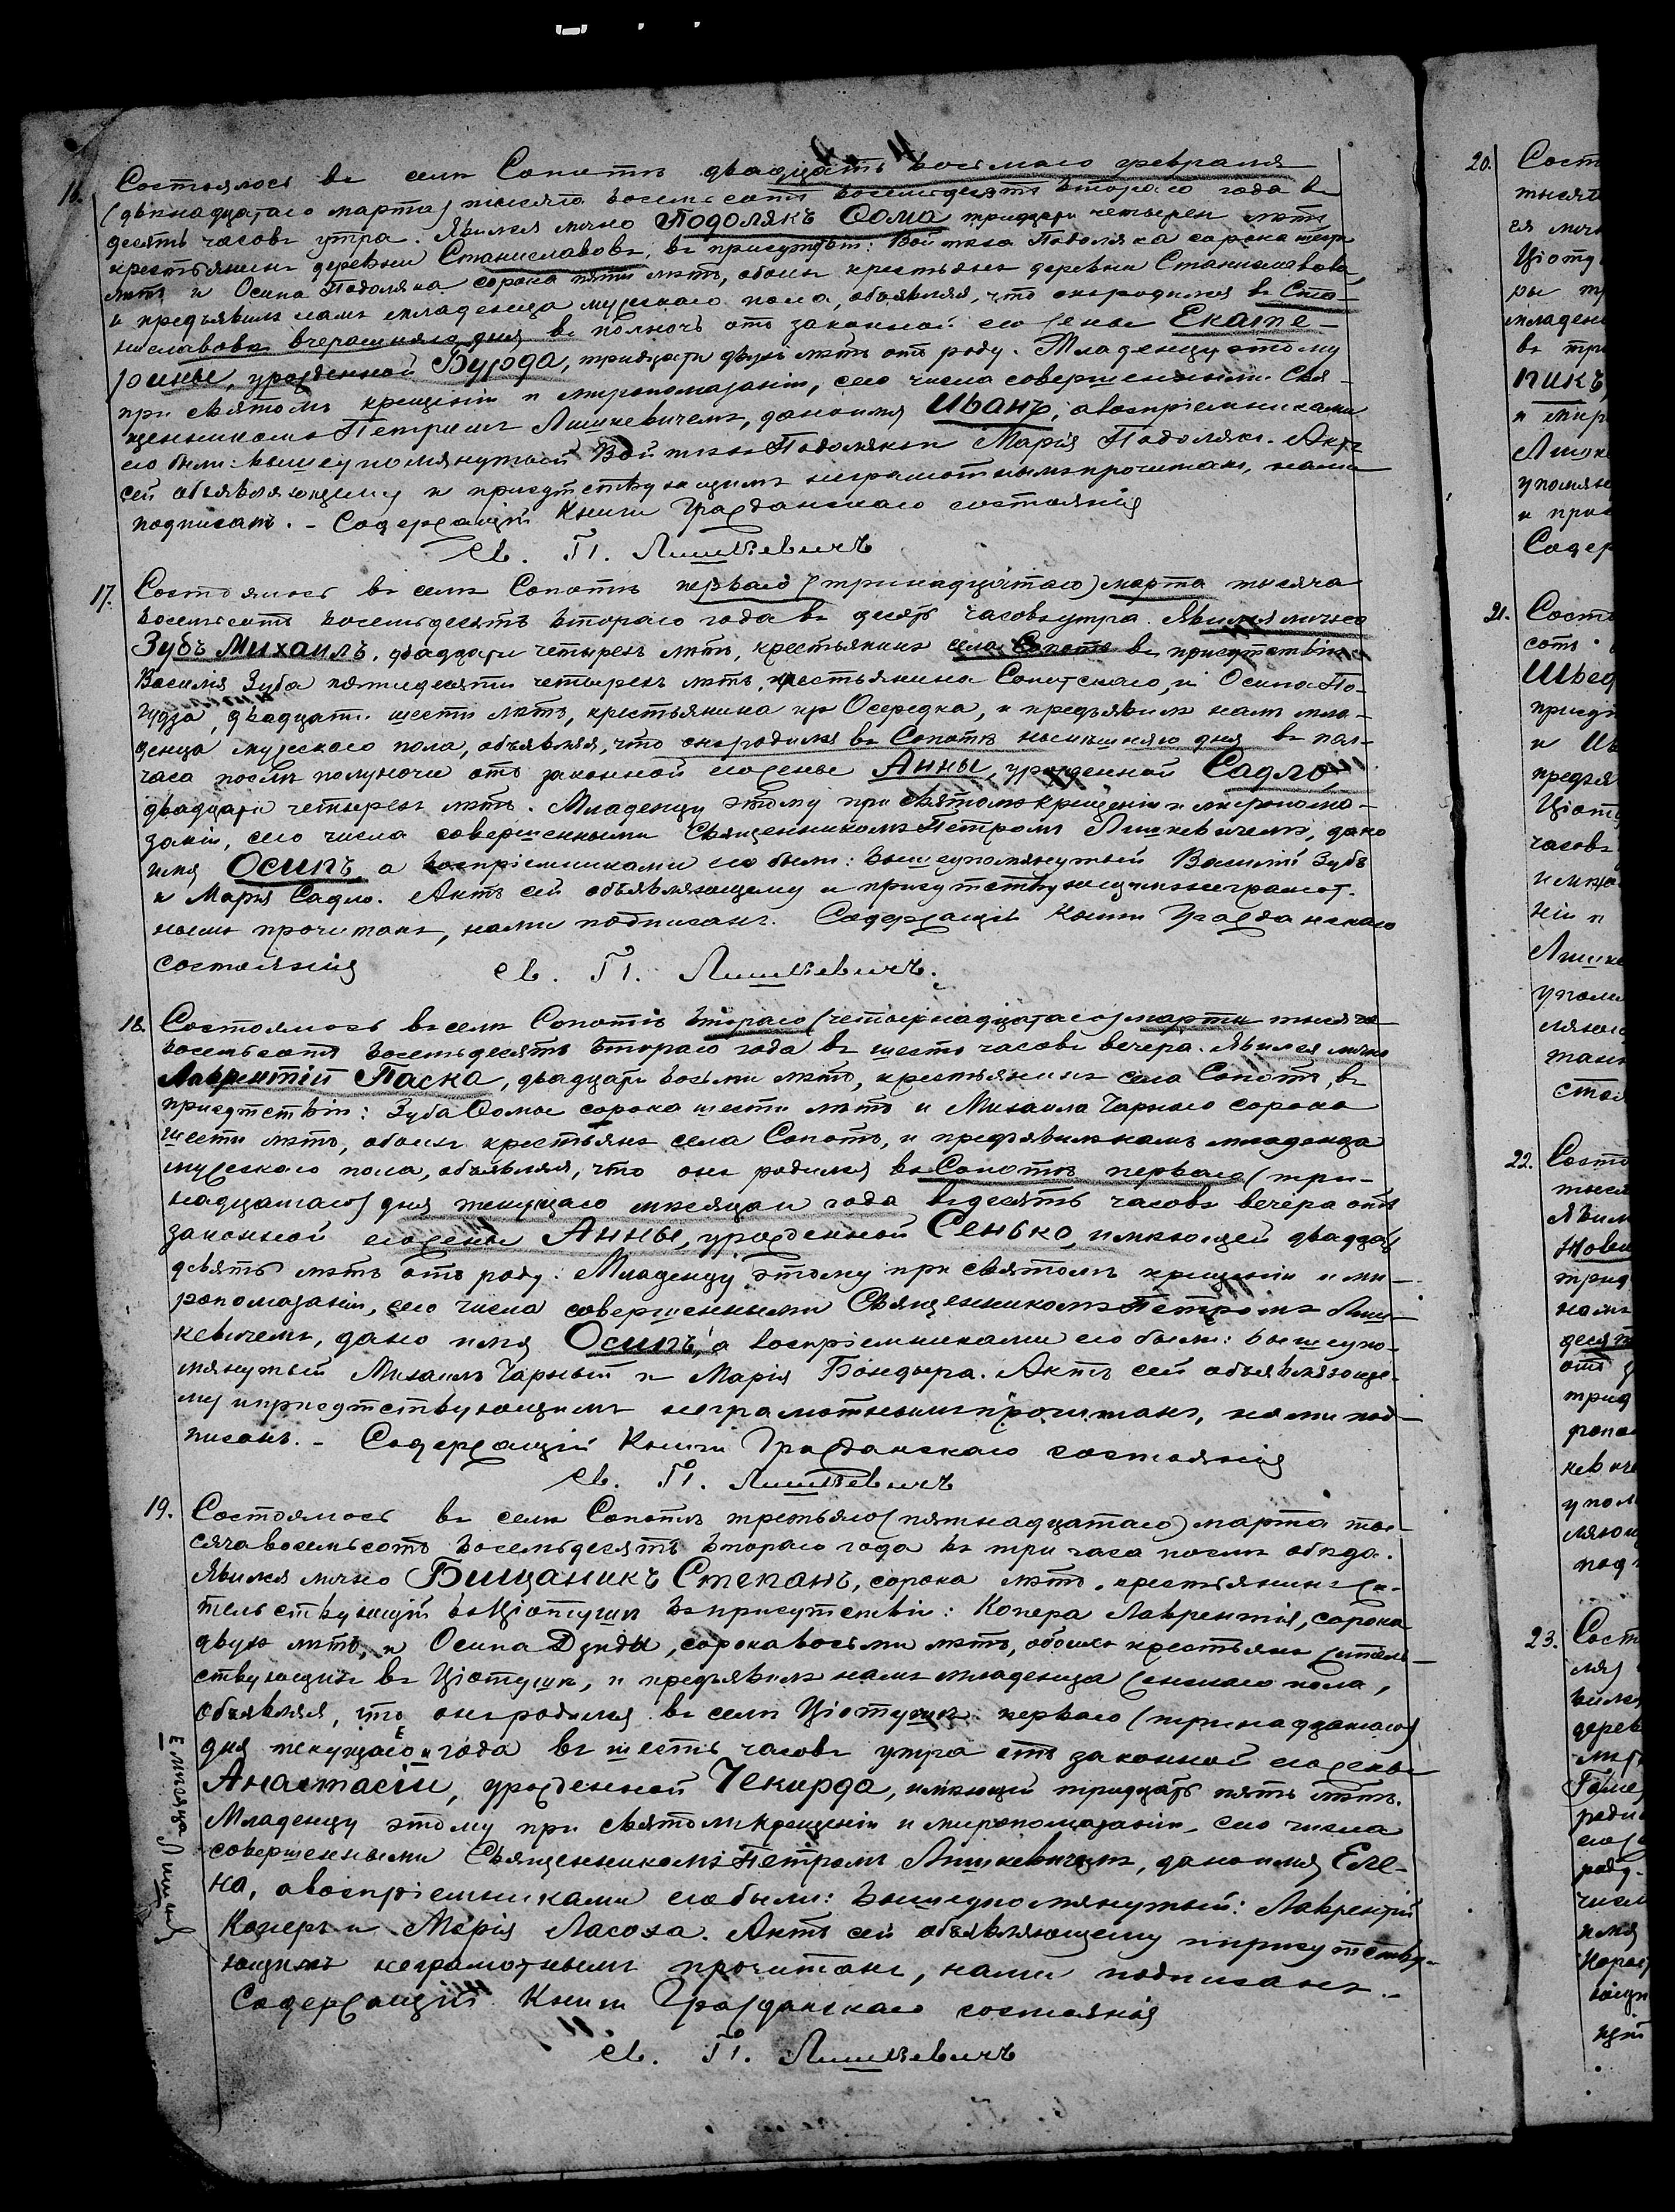 16. Состоялось въ селѣ Сопотѣ двадцать восьмаго февраля
(двѣнадцатаго марта) тысяча восемьсотъ восемьдесятъ втораго года въ
десять часовъ утра. Явился лично Подолякъ Ѳома тридцати четырехъ лѣтъ
крестьянинъ деревни Станиславовъ, въ присутствіи: Войтѣха Подоляка сорока
лѣтъ и Осипа Подоляка сорока пяти лѣтъ, обоихъ крестьянъ деревни Станиславовъ,
и предъявилъ намъ младенца мужескаго пола, объявляя, что онъ родился въ Ста-
ниславовѣ вчерашняго дня въ полночь отъ законной его жены Екате-
рины, урожденной Бурда, тридцати двухъ лѣтъ отъ роду. Младенцу этому
при святомъ крещеніи и миропомазаніи, сего числа совершенными Свя-
щенникомъ Петромъ Лишкевичемъ, дано имя Иванъ, а воспріемниками
его были: вышеупомянутый Войтѣхъ Подолякъ и Марія Подолякъ. Актъ
сей объявляющему и присутствующимъ неграмотнымъ прочитанъ, нами
подписанъ. - Содержащій Книги Гражданскаго состоянія
Св. П. Лишкевичъ
17. Состоялось въ селѣ Сопотѣ перваго (тринадцатаго) марта тысяча
восемьсотъ восемьдесятъ втораго года въ десять часовъ утра. Явился лично
Зубъ Михаилъ, двадцати четырехъ лѣтъ, крестьянинъ села Сопотъ въ присутствіи
Василія Зуба пятидесяти четырехъ лѣтъ, крестьянина Сопотскаго, и Осипа По-
гудза, двадцати шести лѣтъ, крестьянина изъ Осередка, и предъявилъ намъ мла-
денца мужескаго пола, объявляя, что онъ родился въ Сопотѣ нынѣшняго дня въ пол-
часа послѣ полуночи отъ законной его жены Анны, урожденной Садло,
двадцати четырехъ лѣтъ. Младенцу этому при святомъ крещеніи и миропома-
заніи, сего числа совершенными Священникомъ Петромъ Лишкевичемъ, дано
имя Осипъ, а воспріемниками его были: вышеупомянутый Василій Зубъ
и Марія Садло. Актъ сей объявляющему и присутствующимъ неграмот-
нымъ прочитанъ, нами подписанъ. Содержащій Книги Гражданскаго
состоянія Св. П. Лишкевичъ.
18. Состоялось въ селѣ Сопотѣ втораго (четырнадцатаго) марта тысяча
восемьсотъ восемьдесятъ втораго года въ шесть часовъ вечера. Явился лично
Лаврентій Паска, двадцати восьми лѣтъ, крестьянинъ села Сопотъ, въ
присутствіи: Зуба Ѳомы сорока шести лѣтъ и Михаила Чарнаго сорока
шести лѣтъ, обоихъ крестьянъ села Сопотъ, и предъявилъ намъ младенца
мужескаго пола, объявляя, что онъ родился въ Сопотѣ перваго (три-
надцатаго) дня текущаго мѣсяца и года въ десять часовъ вечера отъ
законной его жены Анны, урожденной Сенько, имѣющей двадцать
девять лѣтъ отъ роду. Младенцу этому при святомъ крещеніи и ми-
ропомазаніи, сего числа совершенными Священникомъ Петромъ Лиш-
кевичемъ, дано имя Осипъ, а воспріемниками его были: вышеупо-
мянутый Михаилъ Чарный и Марія Бондыра. Актъ сей объявляюще-
му и присутствующимъ неграмотнымъ прочитанъ, нами под-
писанъ. - Содержащій Книги Гражданскаго состоянія
Св. П. Лишкевичъ
19. Состоялось въ селѣ Сопотѣ третьяго (пятнадцатаго) марта ты-
сяча восемьсотъ восемьдесятъ втораго года въ три часа послѣ обѣда.
Явился лично Бищаникъ Степанъ, сорока лѣтъ, крестьянинъ жи-
тельствующій въ Ціотушѣ въ присутствіи: Копера Лаврентія, сорока
двухъ лѣтъ, и Осипа Дзиды, сорока восьми лѣтъ, обоихъ крестьянъ житель-
ствующихъ въ Ціотушѣ, и предъявилъ намъ младенца женскаго пола,
объявляя, что онъ родился въ селѣ Ціотушѣ перваго (тринадцатаго)
дня текущаго Е и года въ шесть часовъ утра отъ законной его жены
Анастасіи, урожденной Чекирда, имѣющей тридцать пять лѣтъ.
Младенцу этому при святомъ крещеніи и миропомазаніи, сего числа
совершенными Священникомъ Петромъ Лишкевичемъ, дано имя Еле-
на, а воспріемниками его были: вышеупомянутый: Лаврентій
Коперъ и Марія Ласоха. Актъ сей объявляющему и присутству-
ющимъ неграмотнымъ прочитанъ, нами подписанъ.-
Содержащій Книги Гражданскаго состоянія
Св. П. Лишкевичъ
Е мѣсяца
20. Сост
тысяч
ся лич
Ціоту
ры
младен
въ тр
пикъ
и мир
Лишке
упомян
и прис
Содер
21. Состо
сотъ
Швед
присут
предъя
Ціоту
часовъ
имѣю
ніи и
Лишке
упом
ляющ
22. Состо
тыся
Явил
23. Сост